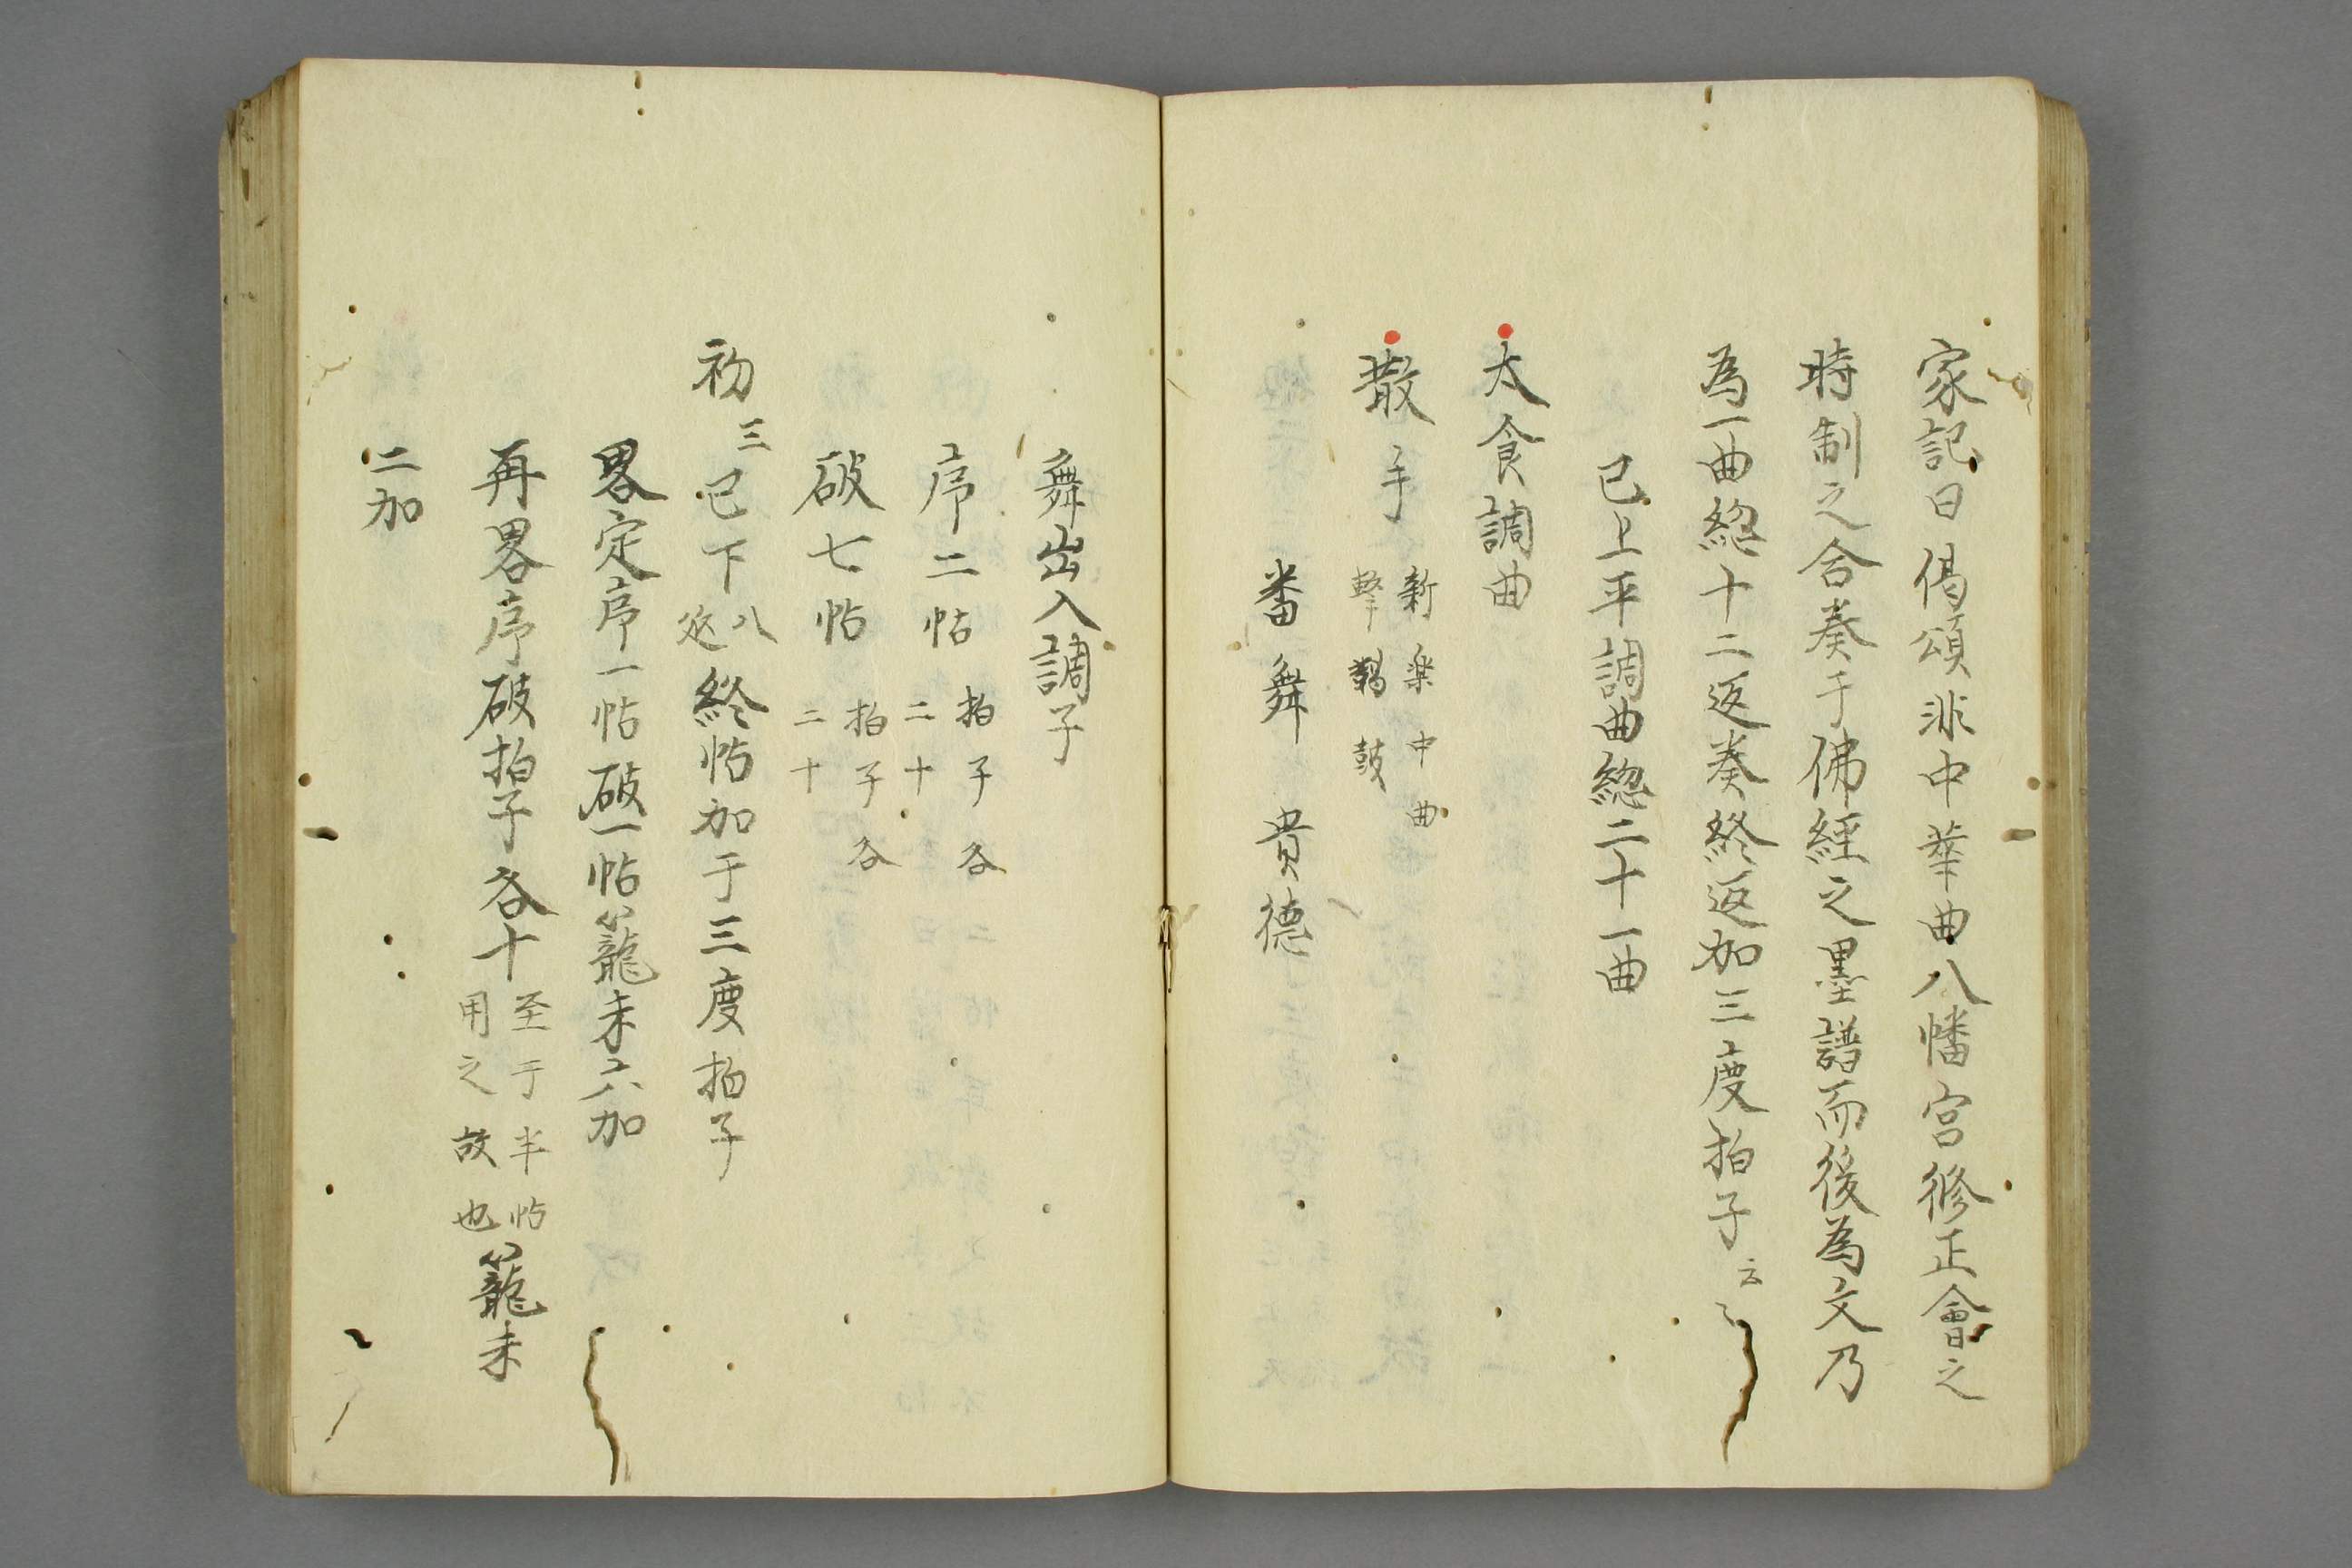 家記曰偈頌非中華曲八幡宮修正會之
時制之合奏于佛經之墨譜而後為文乃
為一曲緫十二返奏終返加三度拍子云々
已上平調曲緫二十一曲
太食調曲
散手 新楽中曲
擊鞨鼓
番舞 貴德
舞出入調子
序二帖 拍子各
二十
破七帖 拍子各
二十
初三已下八
返終帖加于三度拍子
畧定序一帖破一帖籠未六加
再畧序破拍子各十至于半帖
用之故也籠未
二加